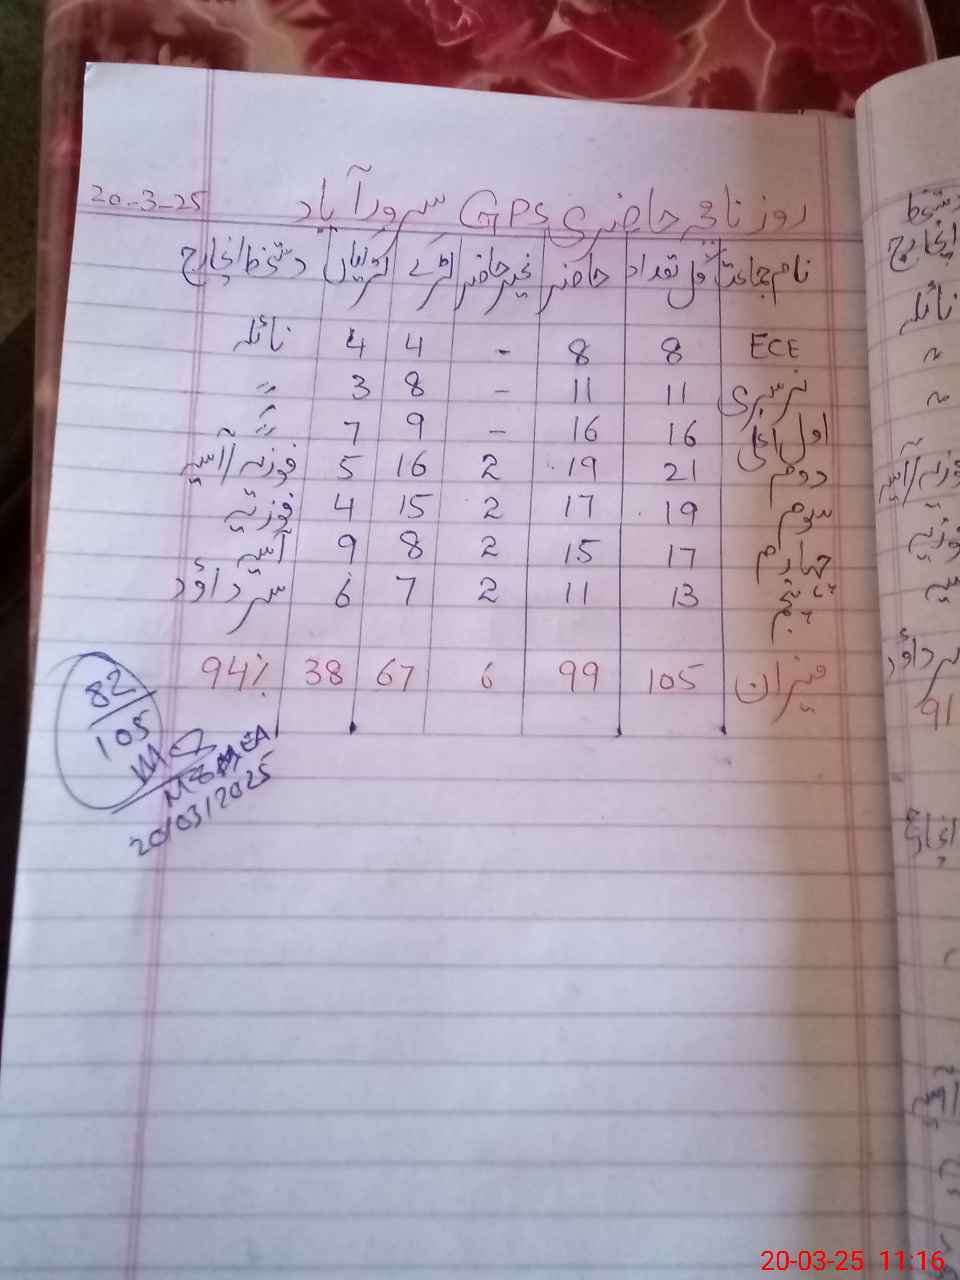 روزنامچہ حاضری GPS سرور آباد 20-3-25
نام جماعت کل تعداد حاضر غیر حاضر لڑکے لڑکیاں دستخط انچارج
ECE 8 8 - 4 4 نائلہ
نرسری 11 11 - 8 3 〃
اول 16 16 - 9 7 〃
دوم 21 19 2 16 5 فوزیہ/آسیہ
سوم 19 17 2 15 4 فوزیہ
چہارم 17 15 2 8 9 آسیہ
پنجم 13 11 2 7 6 سر داؤد
میزان 105 99 6 67 38 94%
82
105
MEA
20/03/2025
20-03-25 11:16